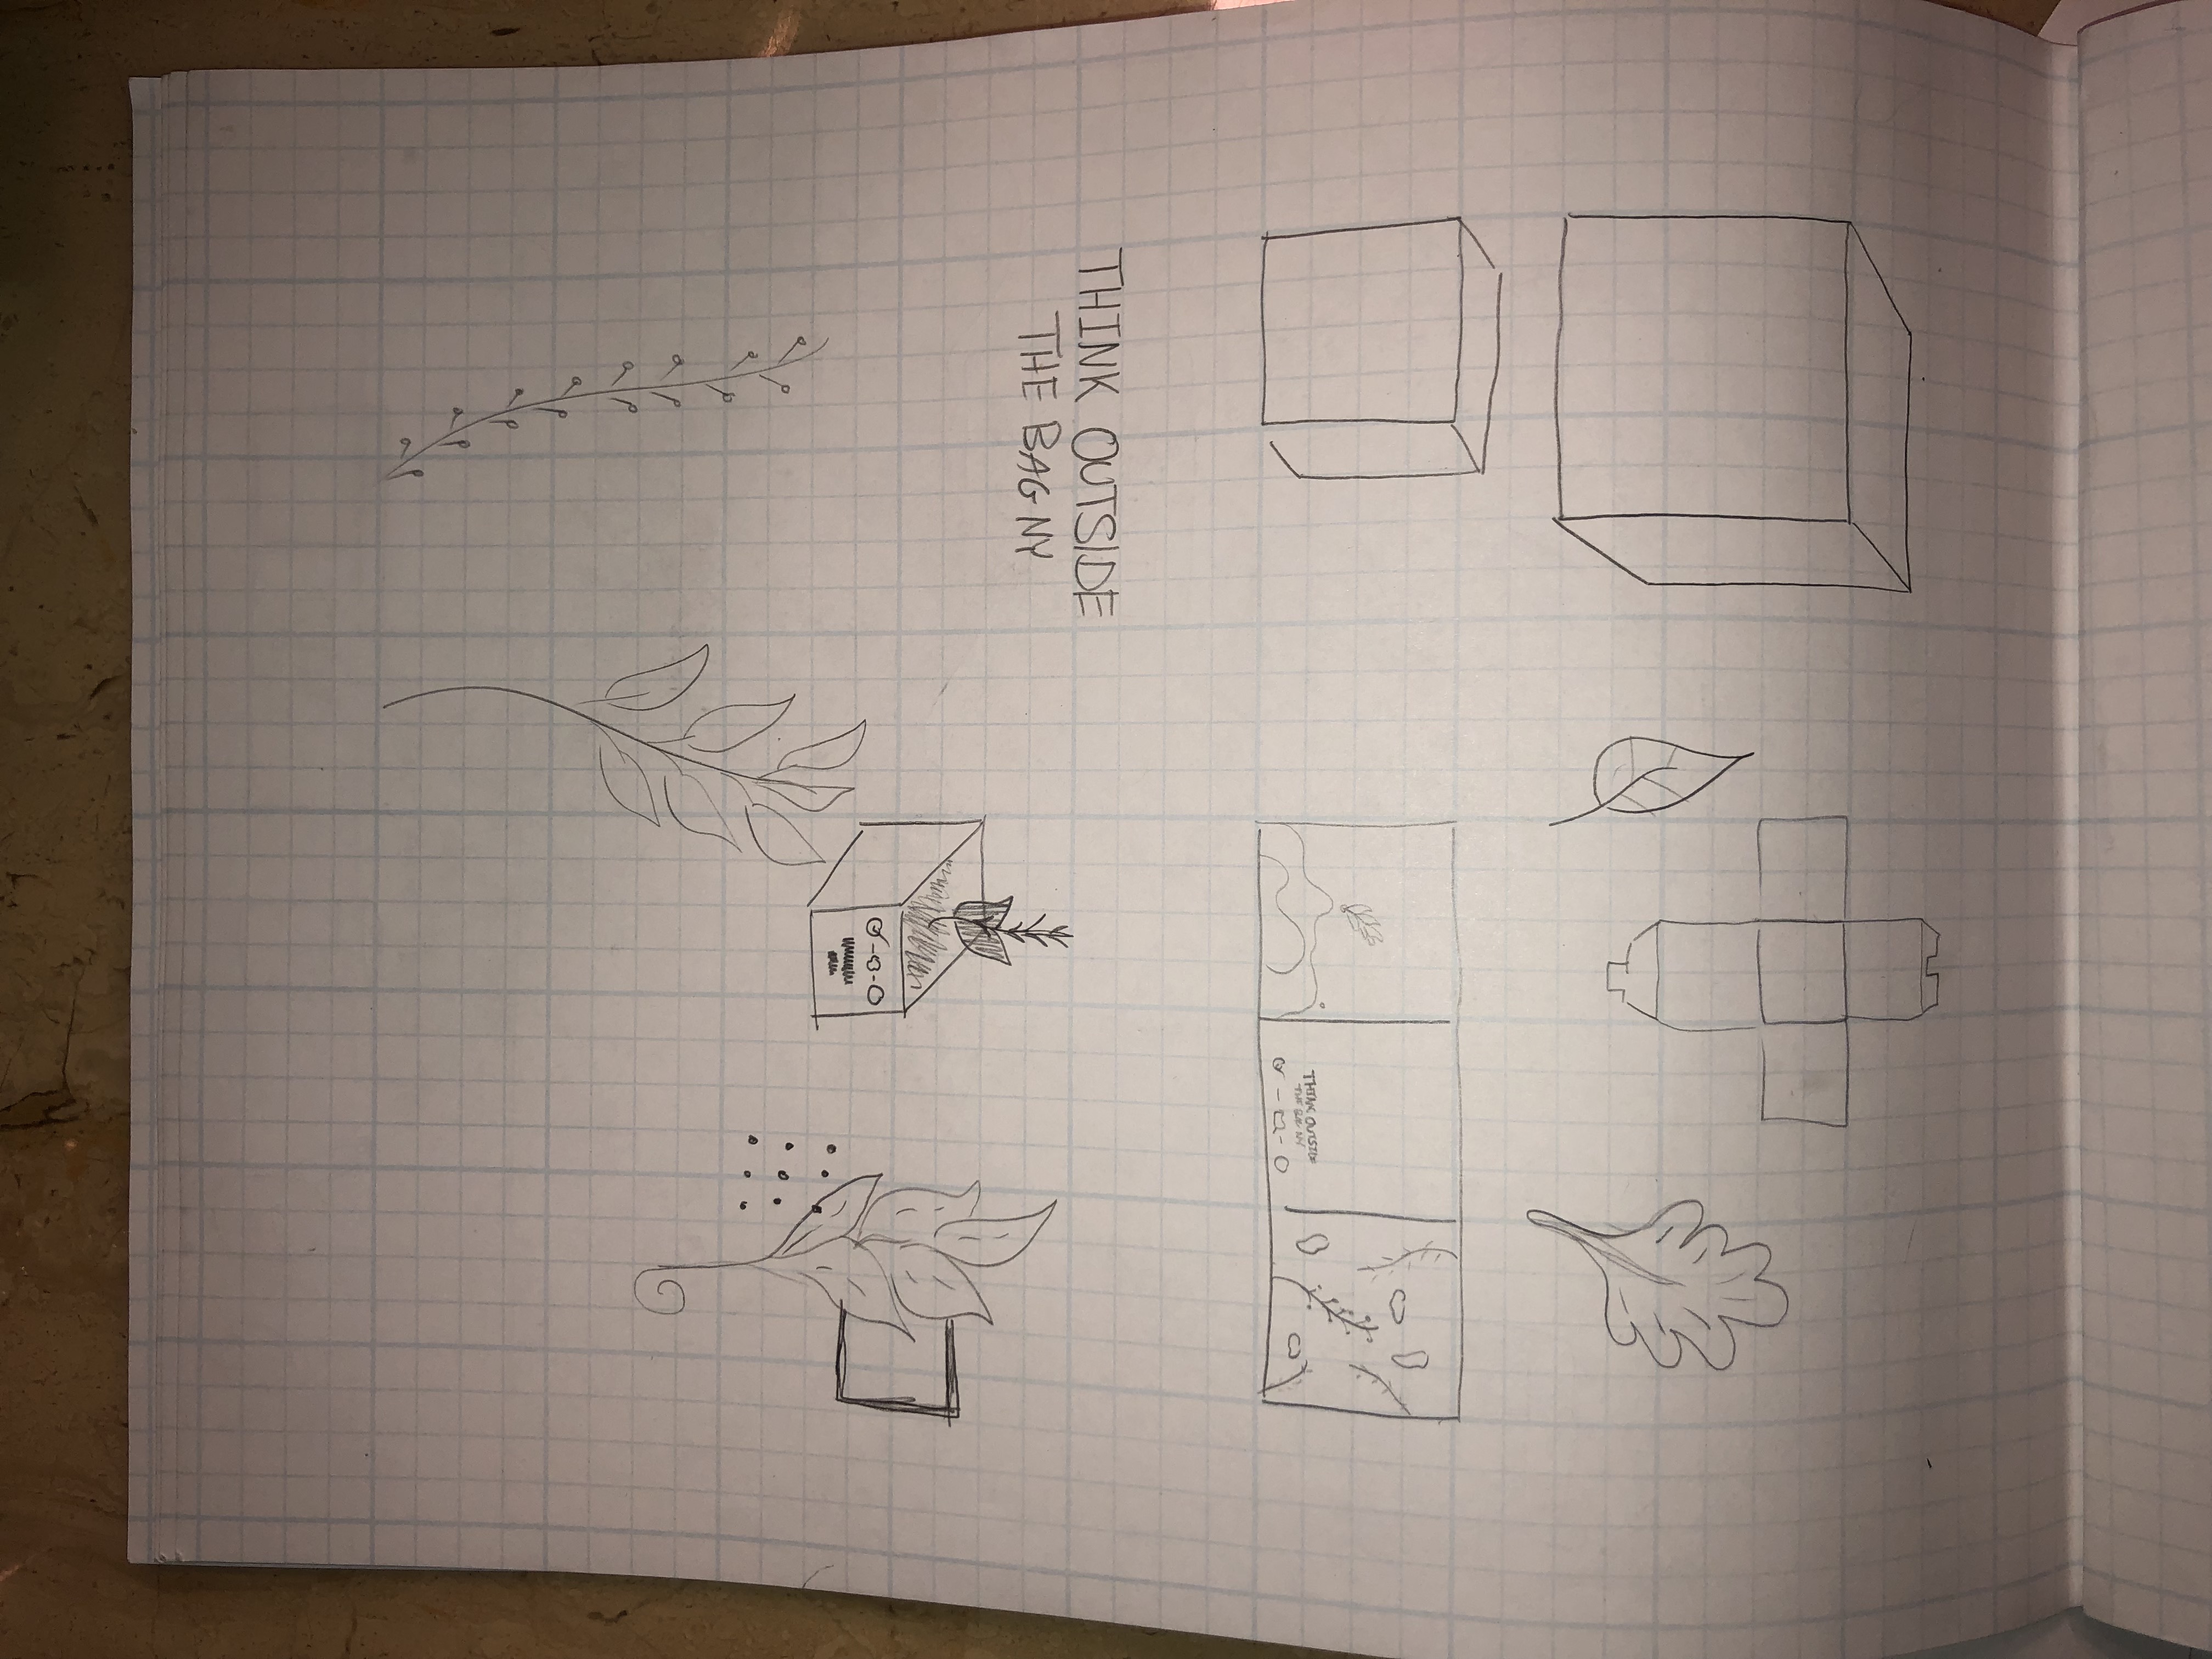 THINK OUTSIDE
THE BAG NY
THINK OUTSIDE
THE BAG NY